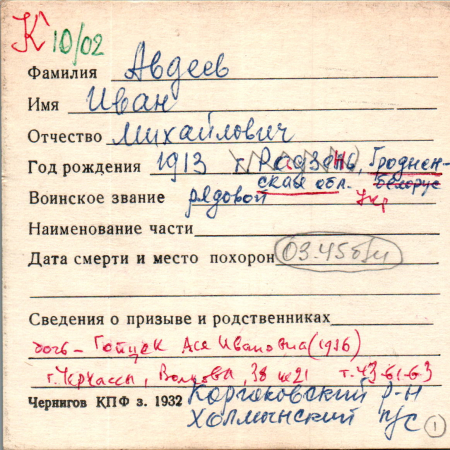 К 10/02
Фамилия Авдеев
Имя Иван
Отчество Михайлович
Год рождения 1913 г. Радзень, Гроднен-
ская обл. Белорус
Воинское звание рядовой Укр
Наименование части
Дата смерти и место похорон 03.45 б/и
Сведения о призыве и родственниках
дочь – Гопцек Ася Ивановна (1936)
г. Черкассы, Волкова, 38 т. 43-61-63
Чернигов КПФ з. 1932 Корюковский р-н
Холмынский п/с 1